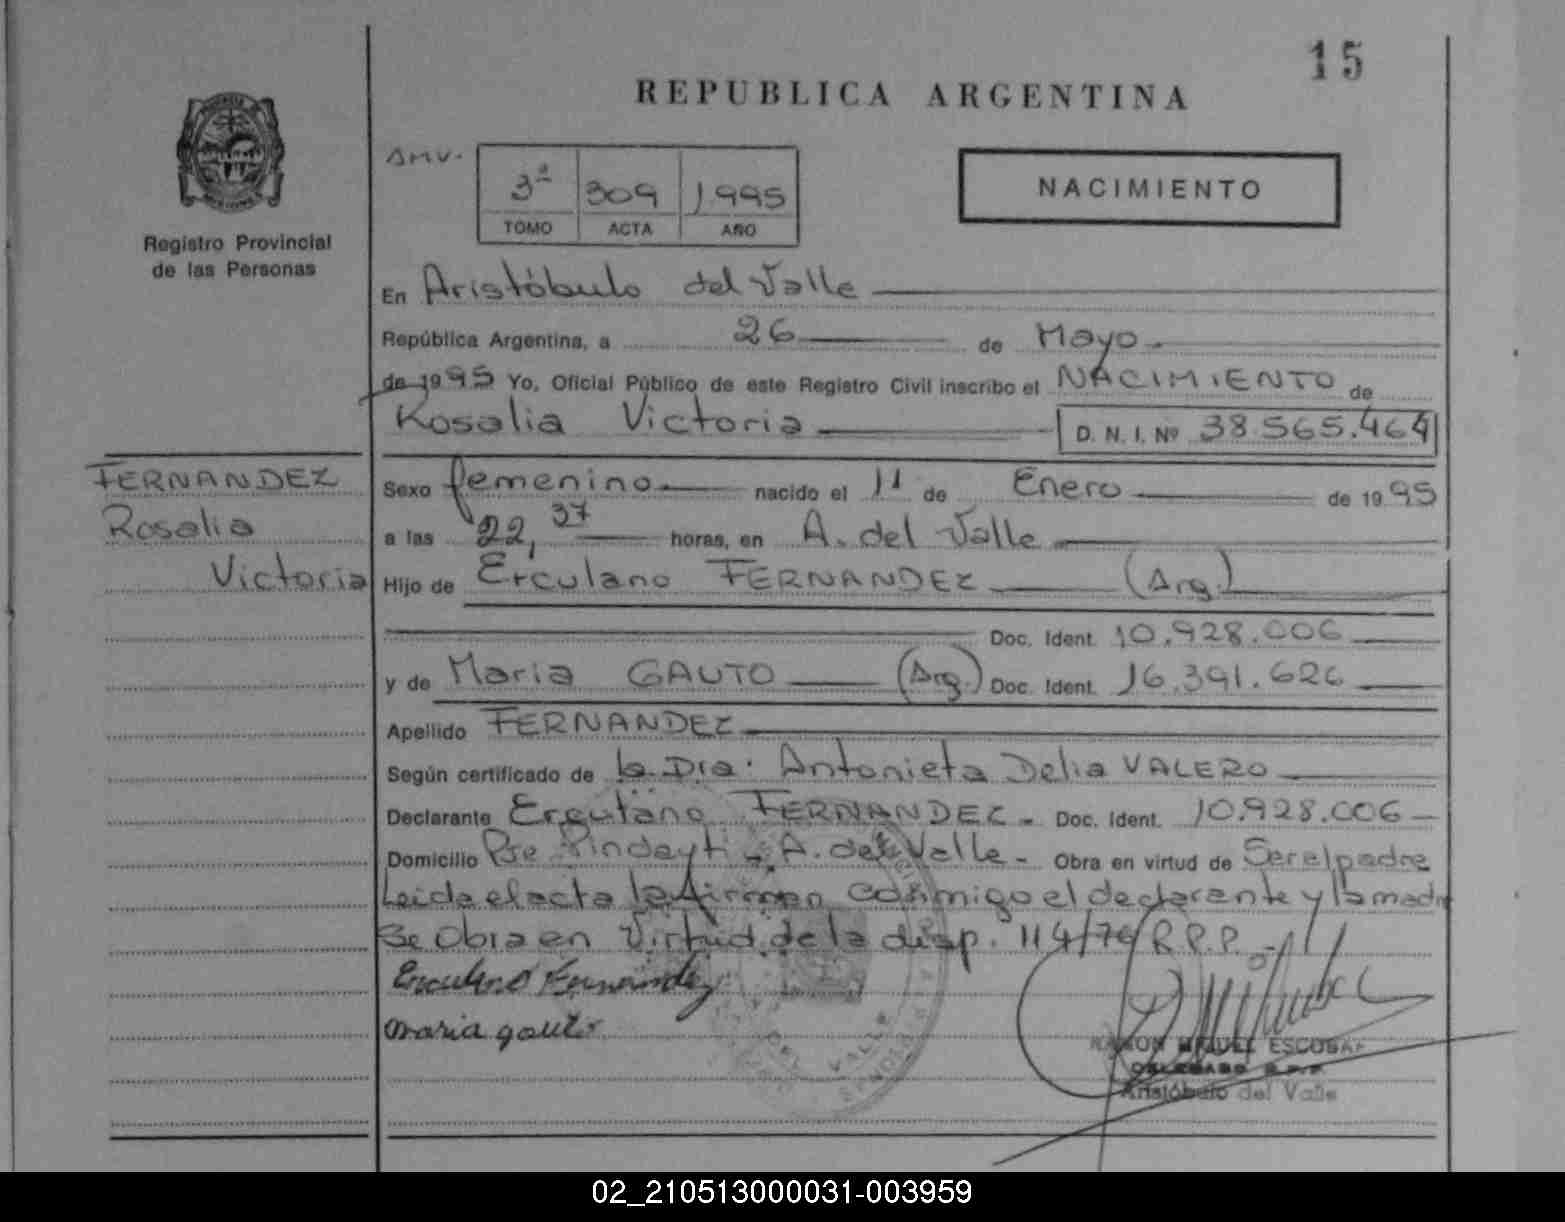 15
REPUBLICA ARGENTINA
AMV.
3ª 309 1995
TOMO ACTA AÑO
NACIMIENTO
Registro Provincial
de las Personas
En Aristóbulo del Valle
República Argentina, a 26 de Mayo
de 1995 Yo, Oficial Público de este Registro Civil inscribo el NACIMIENTO de
Rosalia Victoria D. N. I. Nº 38.565.464
FERNANDEZ
Rosalia
Victoria
Sexo femenino nacido el 11 de Enero de 1995
a las 22,37 horas, en A. del Valle
Hijo de Erculano FERNANDEZ (Arg.)
Doc. Ident. 10.928.006
y de Maria GAUTO (Arg.) Doc. Ident. 16.391.626
Apellido FERNANDEZ
Según certificado de la Dra. Antonieta Delia VALERO
Declarante Erculano FERNANDEZ - Doc. Ident. 10.928.006
Domicilio Pje Pindayti - A. del Valle - Obra en virtud de Ser el padre
Leida el acta la firman conmigo el declarante y la madre
Se Obra en Virtud de la disp. 114/76 R.P.P. -
Erculano Fernandez
maria gauto
RAMON MIGUEL ESCOBAR
DELEGADO R.P.P.
Aristóbulo del Valle
DEL VALLE
02_210513000031-003959